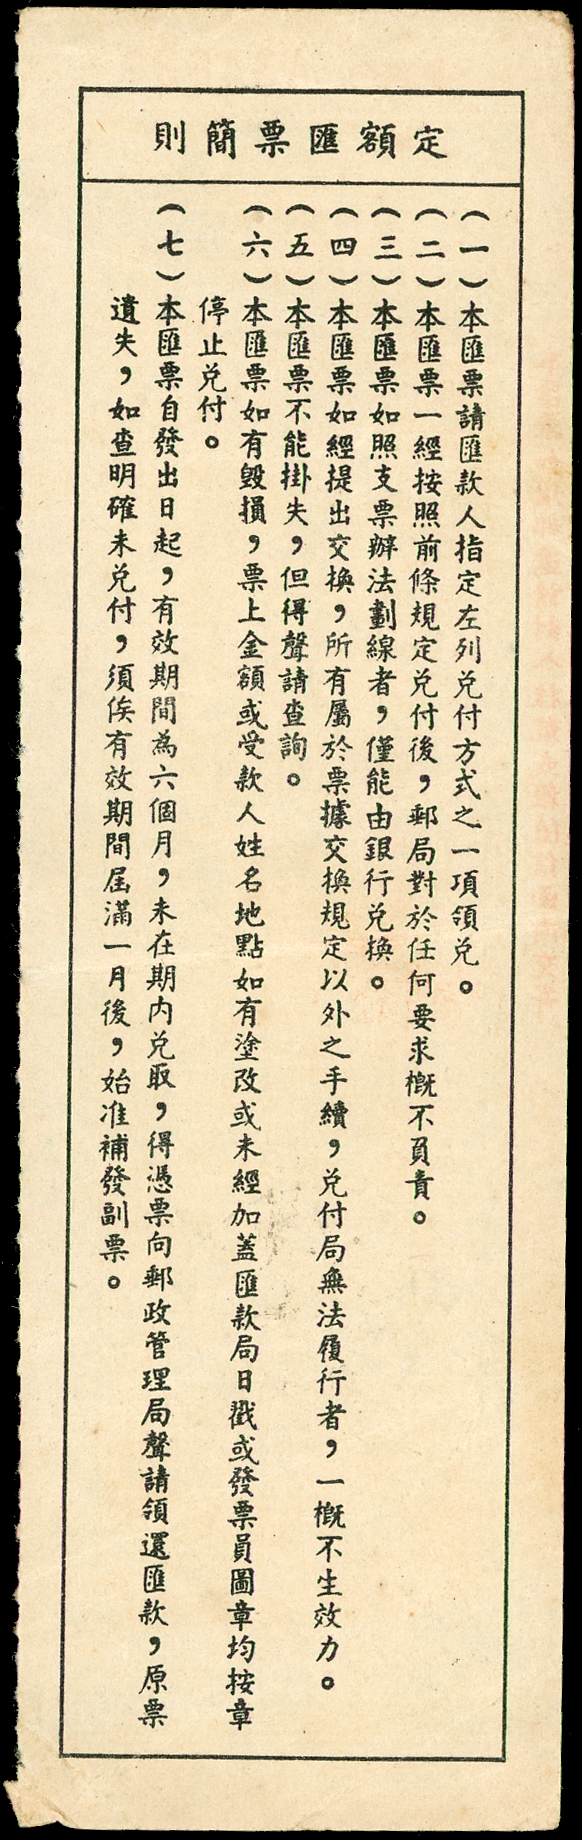 定額匯票簡則
(一)本匯票請匯款人指定左列兌付方式之一項領兌。
(二)本匯票一經按照前條規定兌付後，郵局對於任何要求概不負責。
(三)本匯票如照支票辦法劃線者，僅能由銀行兌換。
(四)本匯票如經提出交換，所有屬於票據交換規定以外之手續，兌付局無法履行者，一概不生效力。
(五)本匯票不能掛失，但得聲請查詢。
(六)本匯票如有毀損，票上金額或受款人姓名地點如有塗改或未經加蓋匯款局日戳或發票員圖章均按章
停止兌付。
(七)本匯票自發出日起，有效期間為六個月，未在期內兌取，得憑票向郵政管理局聲請領還匯款，原票
遺失，如查明確未兌付，須俟有效期間屆滿一月後，始准補發副票。